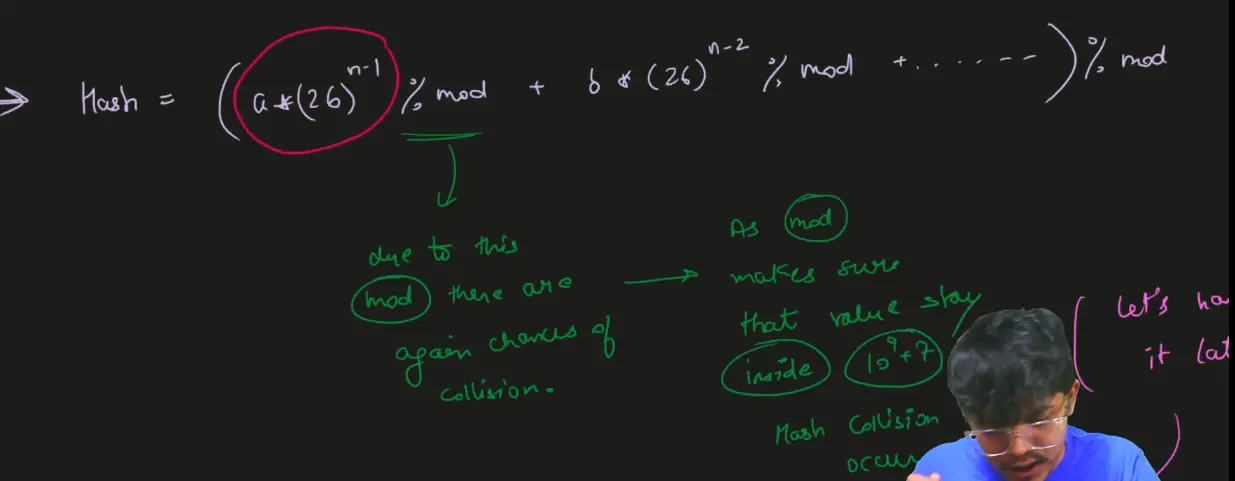 → Hash = (a*(26)^{n-1} % mod + b*(26)^{n-2} % mod + ......--) % mod
due to this
mod there are
again chances of
collision.
→
As mod
makes sure
that value stay
inside 10^9+7
Hash Collision
occur
(let's
it
)